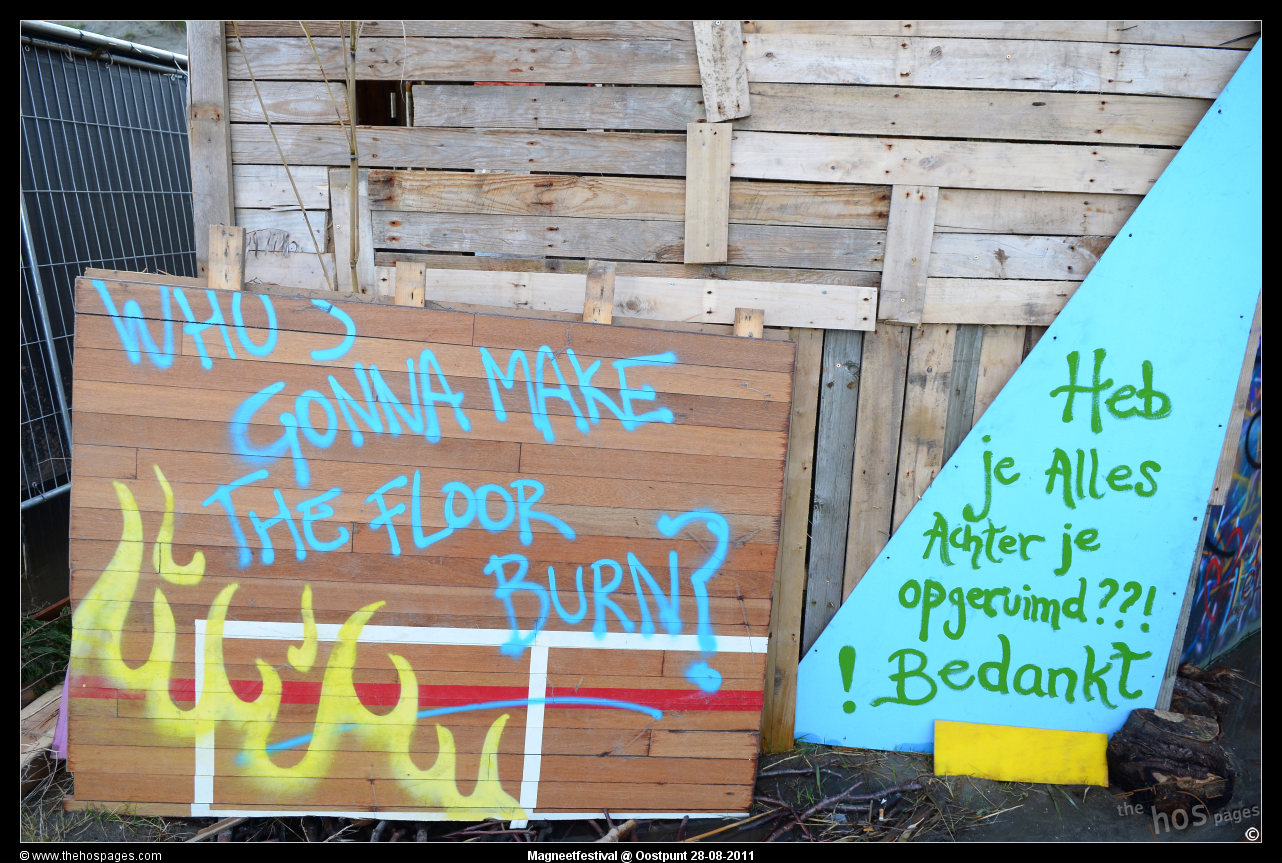 WHO'S
GONNA MAKE
THE FLOOR
BURN?
Heb
je Alles
Achter je
opgeruimd??!
! Bedankt
the hos pages
©
© www.thehospages.com
Magneetfestival @ Oostpunt 28-08-2011